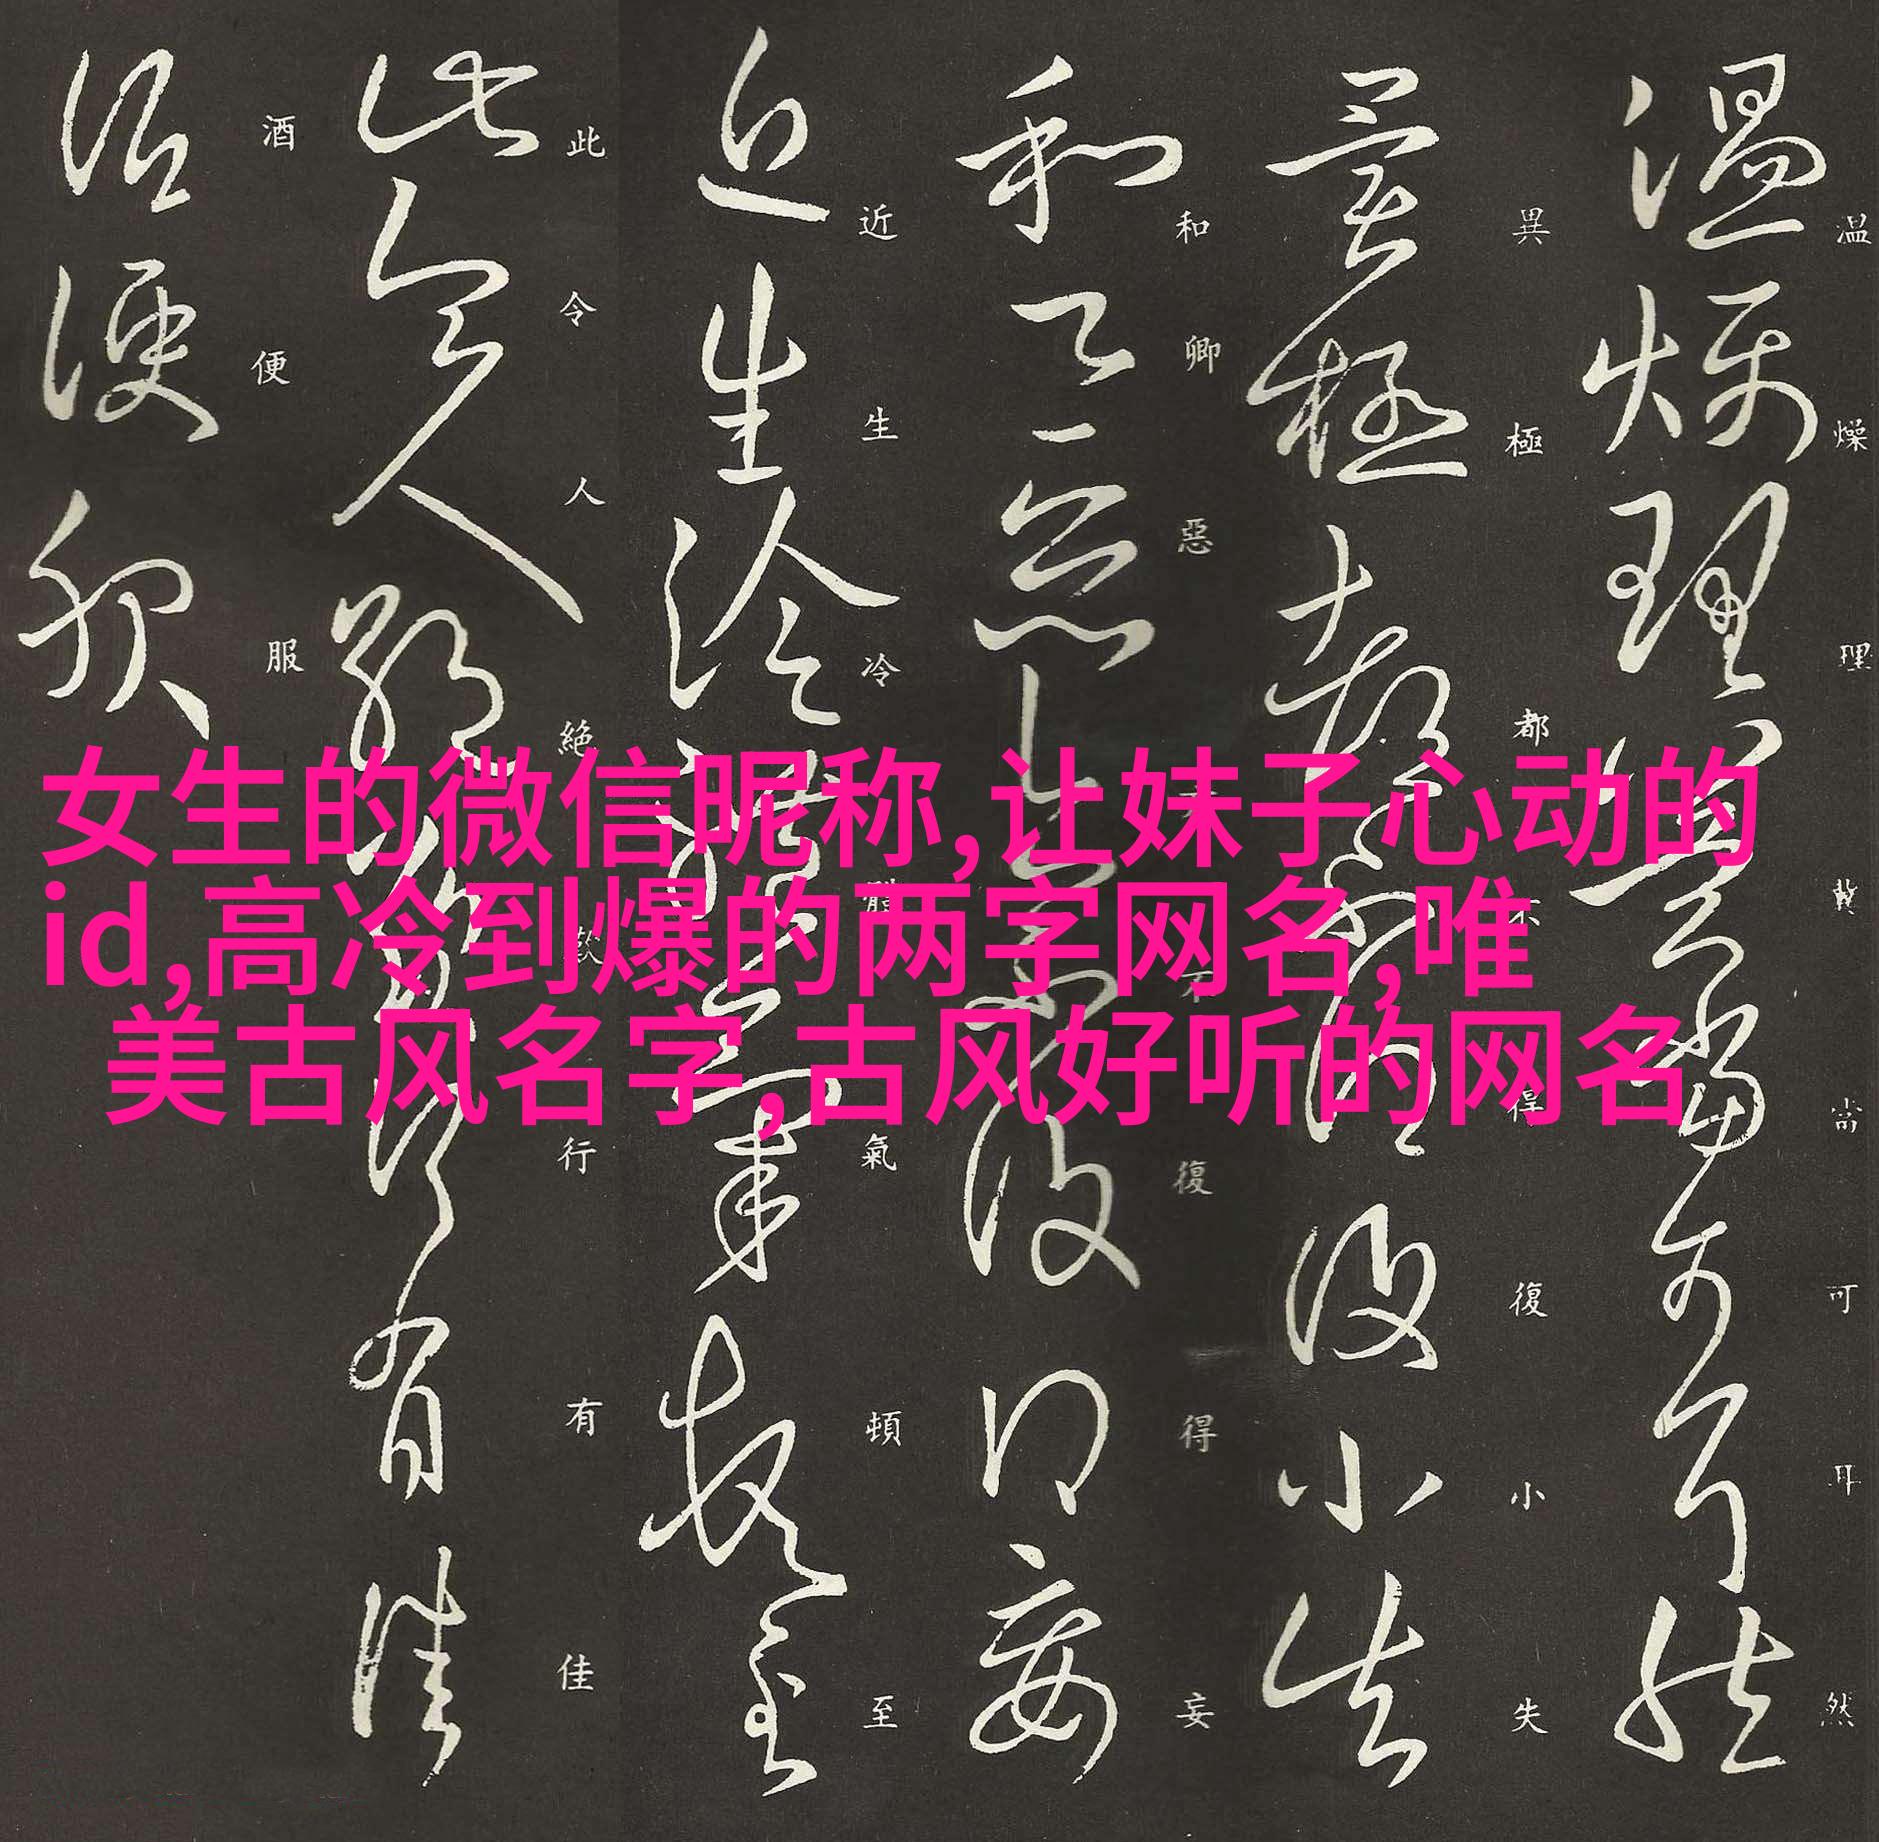 温燥理冀當可耳然
異極都不得復小失
和卿惡不復得妄
近生冷體氣頓至
此令人絕歎行有佳
酒便服
女生的微信昵称,让妹子心动的
id,高冷到爆的两字网名,唯
美古风名字,古风好听的网名